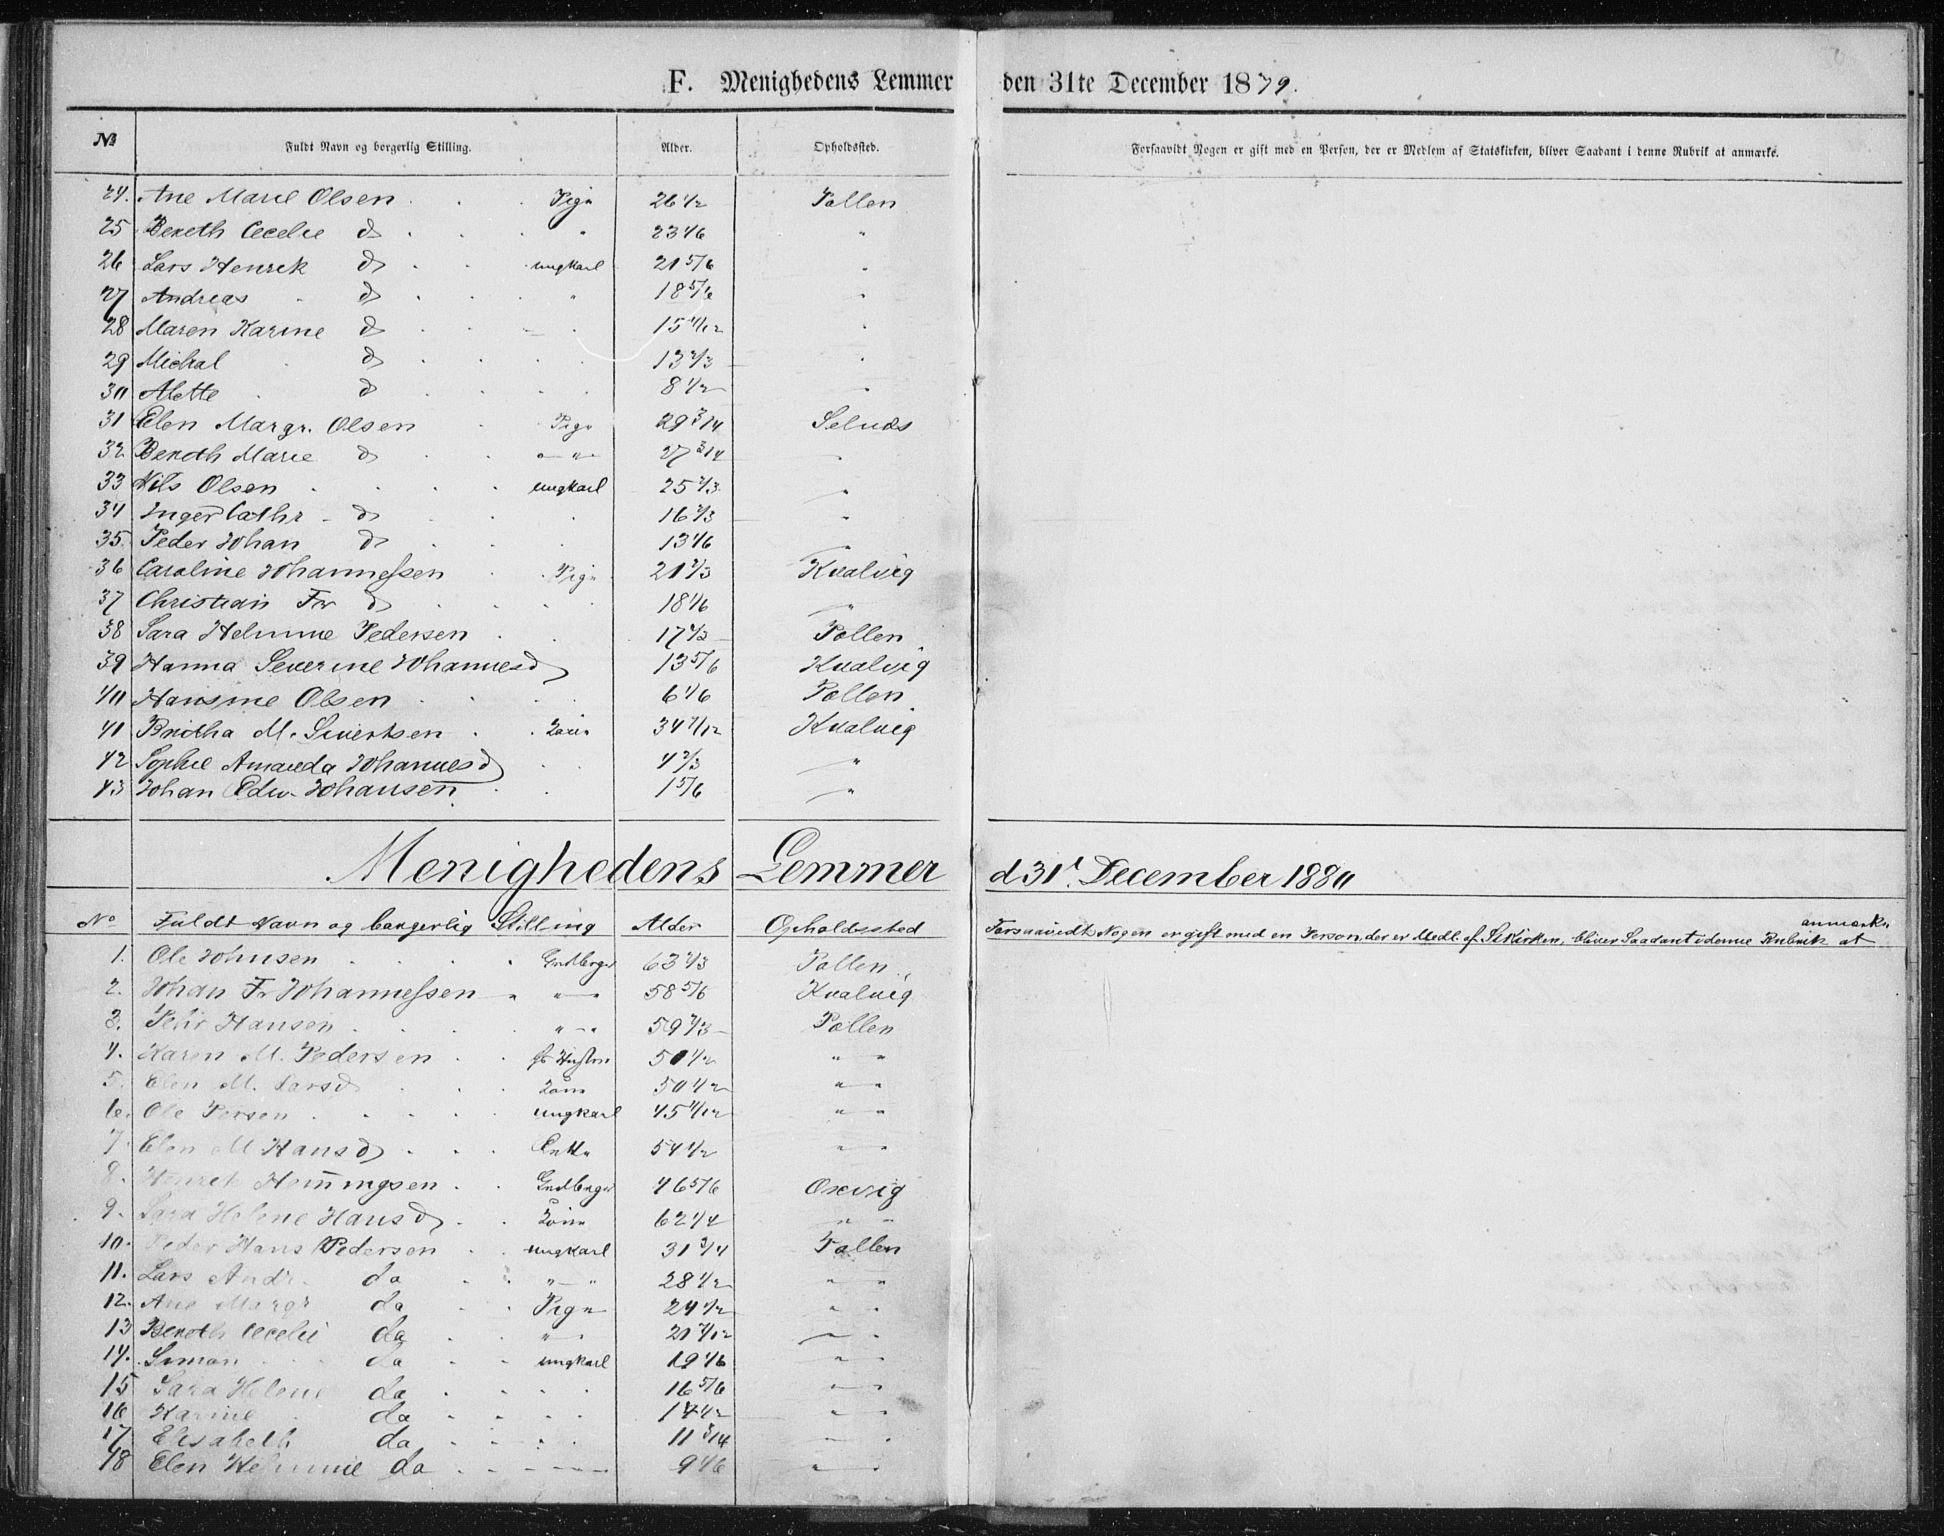 F. Menighedens Lemmer den 31te December 1879.
№ Fuldt Navn og borgerlig Stilling. Alder. Opholdssted. Forsaavidt Nogen er gift med en Person, der er Medlem af Statskirken, bliver Saadant i denne Rubrik at anmærke.
24. Ane Marie Olsen Pige 26 1/2 Pollen
25 Bereth Cecelie do " 23 1/6 "
26 Lars Henrik do ungkarl 21 5/6 "
27 Andreas do " 18 5/6 "
28 Maren Karine do " 15 11/12 "
29 Mickal do 13 2/3 "
30 Alette do 8 1/2 "
31 Elen Margr. Olsen Pige 29 3/4 Selnæs
32 Bereth Marie do " 27 3/4 "
33 Nils Olsen ungkarl 25 2/3 "
34 Inger Cathr do 16 2/3 "
35. Peder Johan do 13 1/6 "
36 Caroline Johannessen Pige 21 2/3 Kvalvig
37 Christian Fr do 18 1/6 "
38 Sara Helmine Pedersen 17 1/3 Pollen
39 Hanna Severine Johannesd 13 5/6 Kvalvig
40 Hansine Olsen 6 1/6 Pollen
41 Britha M. Sivertsen 34 7/12 Kvalvig
42 Sophie Amanda Johannesd 4 2/3 "
43 Johan Edw Johansen 1 5/6 "
Menighedens Lemmer d 31t December 1880
No Fuldt Navn og borgerlig Stilling Alder Opholdssted Forsaavidt Nogen er gift med en Person, der er Medl. af Stkirken, bliver Saadant i denne Rubrik at anmærke
1. Ole Johnsen Grdbrger 63 1/3 Pollen
2. Johan Fr Johannessen " 58 5/6 Kvalvig
3. Pehr Hansen " 59 2/3 Pollen
4. Karen M. Pedersen 50 1/2 "
5. Elen M. Larsd 50 1/2 "
6. Ole Persen ungkarl 45 11/12 "
7. Elen M Hansd Enke 54 1/2 "
8. Henrik Hemingsen Grdbrger 46 5/6 Oxvig
9. Sara Helene Hansd 62 1/4 "
10. Peder Hans Pedersen ungkarl 31 3/4 Pollen
11. Lars Andr. do " 28 1/2 "
12. Ane Margr do Pige 24 1/2 "
13 Bereth Cecelie do " 21 7/12 "
14. Simon do ungkarl 19 1/6 "
15 Sara Helene do 16 5/6 "
16 Karine do 14 1/2 "
17 Elisabeth do 11 3/4 "
18 Elen Helmine do 9 1/6 "